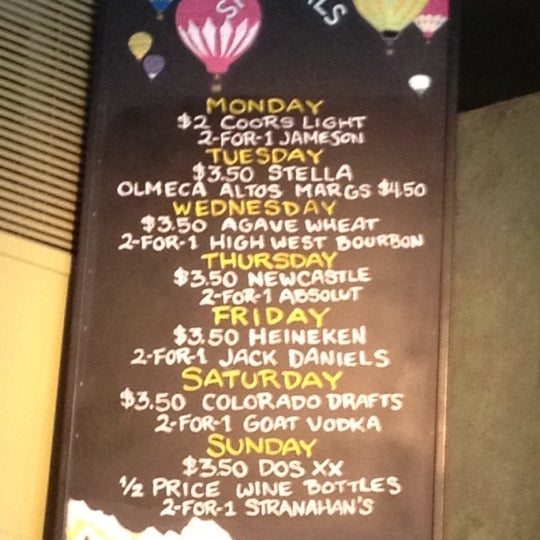 MONDAY
$2 COORS LIGHT
2-FOR-1 JAMESON
TUESDAY
$3.50 STELLA
OLMECA ALTOS MARGS $4.50
WEDNESDAY
$3.50 AGAVE WHEAT
2-FOR-1 HIGH WEST BOURBON
THURSDAY
$3.50 NEWCASTLE
2-FOR-1 ABSOLUT
FRIDAY
$3.50 HEINEKEN
2-FOR-1 JACK DANIELS
SATURDAY
$3.50 COLORADO DRAFTS
2-FOR-1 GOAT VODKA
SUNDAY
$3.50 DOS XX
1/2 PRICE WINE BOTTLES
2-FOR-1 STRANAHAN'S